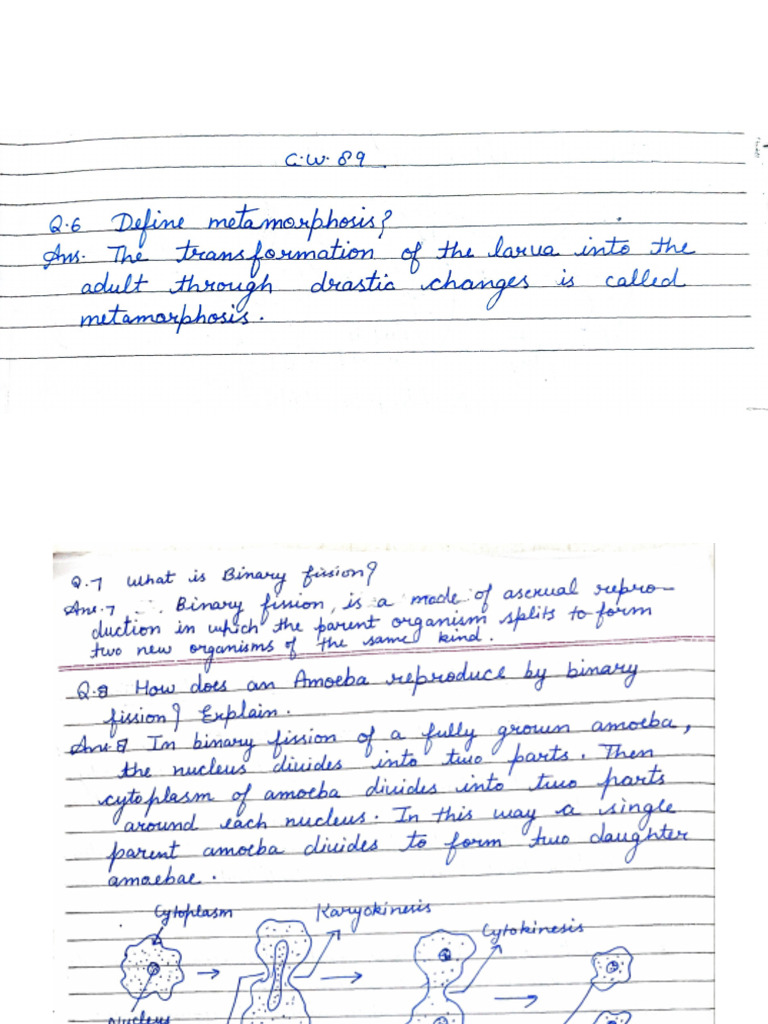 C.W. 89
Q.6 Define metamorphosis?
Ans. The transformation of the larva into the
adult through drastic changes is called
metamorphosis.
Q.7 What is Binary fission?
Ans.7 Binary fission, is a mode of asexual repro-
duction in which the parent organism splits to form
two new organisms of the same kind.
Q.8 How does an Amoeba reproduce by binary
fission? Explain.
Ans.8 In binary fission of a fully grown amoeba,
the nucleus divides into two parts. Then
cytoplasm of amoeba divides into two parts
around each nucleus. In this way a single
parent amoeba divides to form two daughter
amoebae.
Cytoplasm
Karyokinesis
Cytokinesis
Nucleus